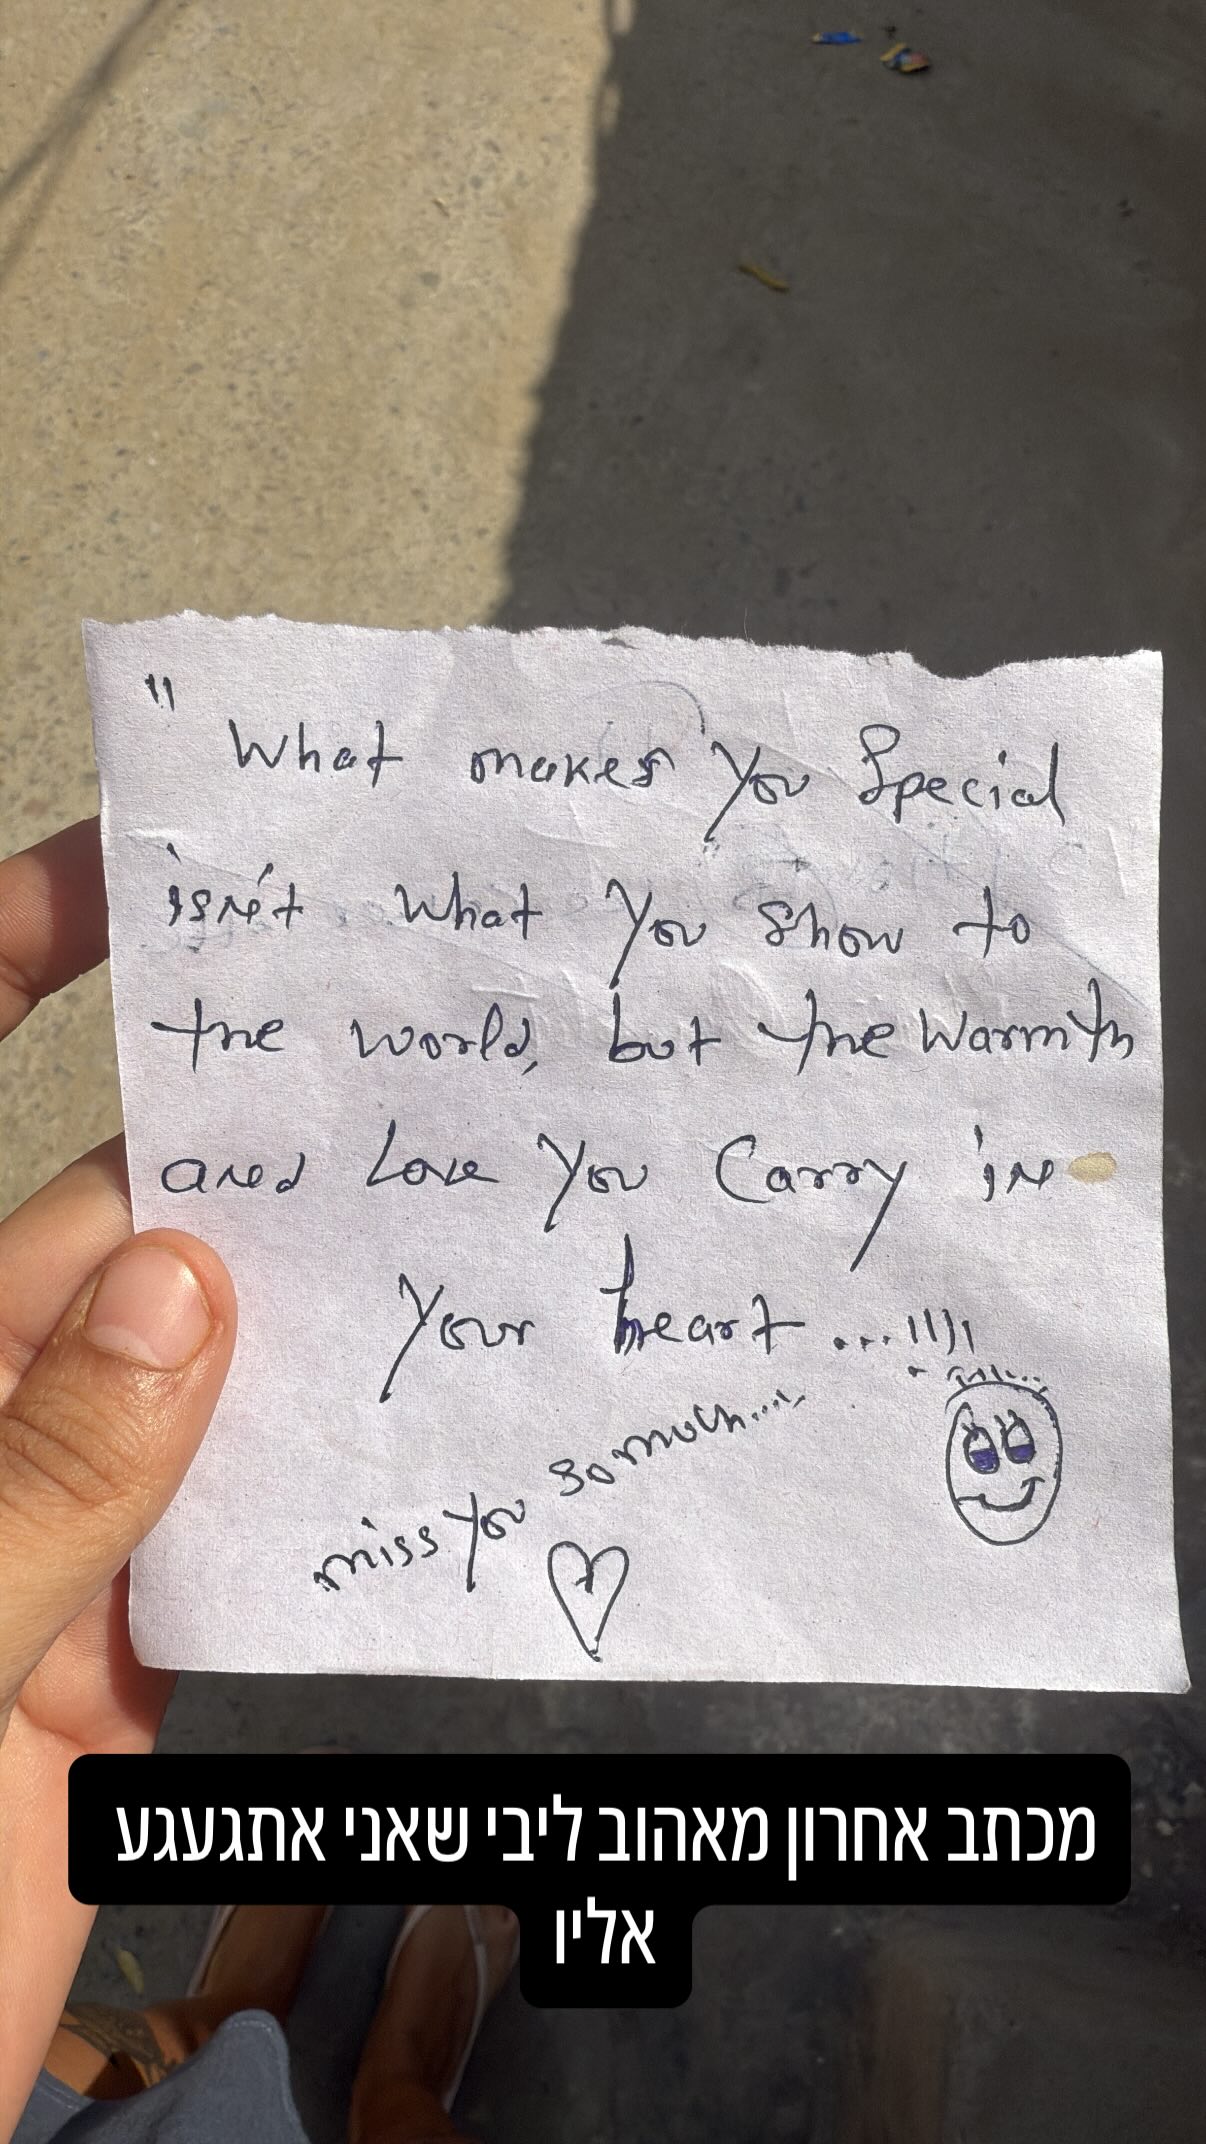 "What makes you Special
isn't what you show to
the world, but the warmth
and Love you Carry in
your heart...!!!!
miss you so much....
מכתב אחרון מאהוב ליבי שאני אתגעגע
אליו